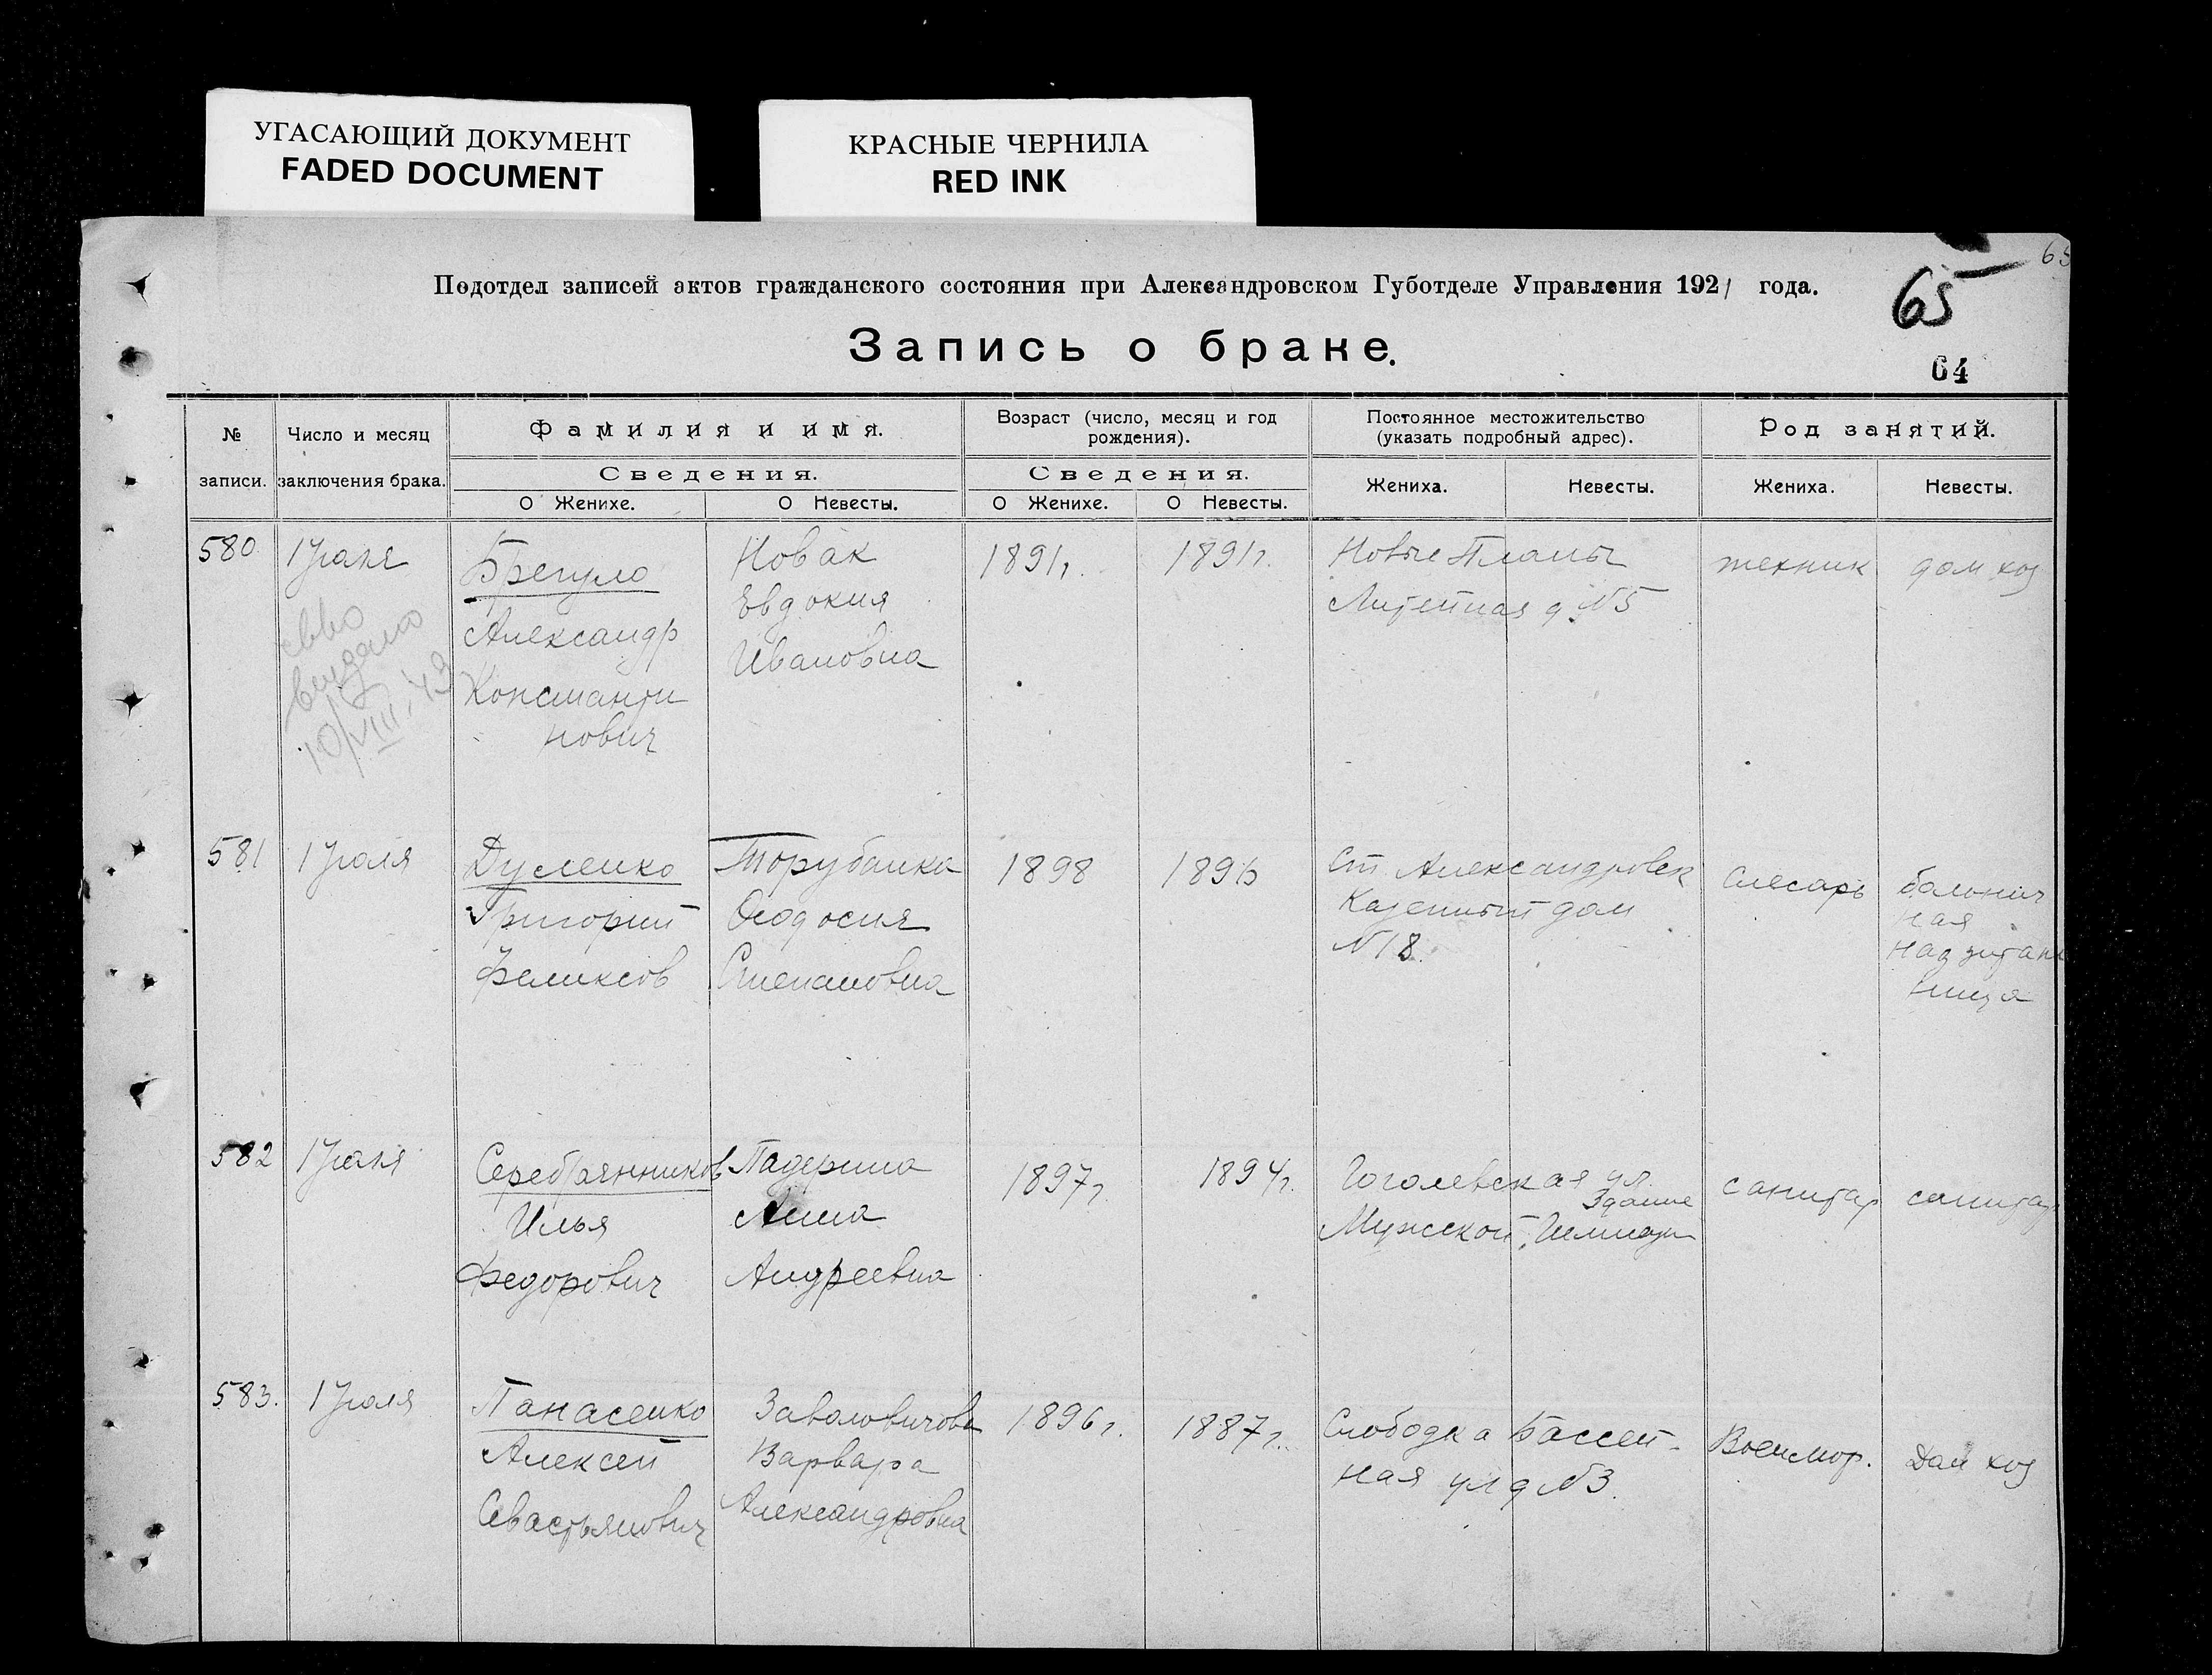 УГАСАЮЩИЙ ДОКУМЕНТ
FADED DOCUMENT
КРАСНЫЕ ЧЕРНИЛА
RED INK
Подотдел записей актов гражданского состояния при Александровском Губотделе Управления 1921 года.
65
Запись о браке.
64
№ записи.
Число и месяц заключения брака.
Фамилия и имя.
Сведения.
О Женихе.
О Невесты.
Возраст (число, месяц и год рождения).
Сведения.
О Женихе.
О Невесты.
Постоянное местожительство (указать подробный адрес).
Жениха.
Невесты.
Род занятий.
Жениха.
Невесты.
580
1 Июля
выдано
10/VIII
Брегуло
Александр
Константи
нович
Новак
Евдокия
Ивановна
1891г.
1891г.
Новые Планы
Литейная д №5
техник
дом хоз
581
1 Июля
Дуленко
Григорий
Феликсов
Торубанка
Феодосия
Степановна
1898
1896
Ст Александровск
Казенный дом
№18.
Слесарь
ная
ница
582
1 Июля
Серебрянников
Илья
Федорович
Падерина
Анна
Андреевна
1897г.
1894г.
Гоголевская ул.
Здание
Мужской Гимнази
санитар
санитар
583.
1 Июля
Панасенко
Алексей
Севастьянович
Заволовичова
Варвара
Александровна
1896г.
1887г.
Слободка Бассей-
ная ул д №3.
Военмор.
Дом хоз